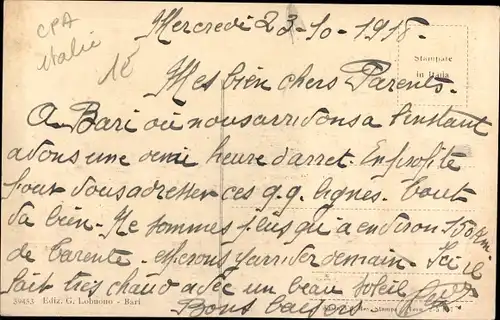 CPA
Italie
1€
Mercredi 23-10-1918
Stampate
in Italia
Mes bien chers Parents.
A Bari où nous arrivons a l'instant
avons une demi heure d'arret. En profite
pour vous adresser ces q.q. lignes. tout
va bien. Ne sommes plus qu'a environ 150 Km
de tarente. esperons y arriver demain. Ici il
fait très chaud avec un beau soleil
Bons baisers
39453 Ediz. G. Lobuono - Bari